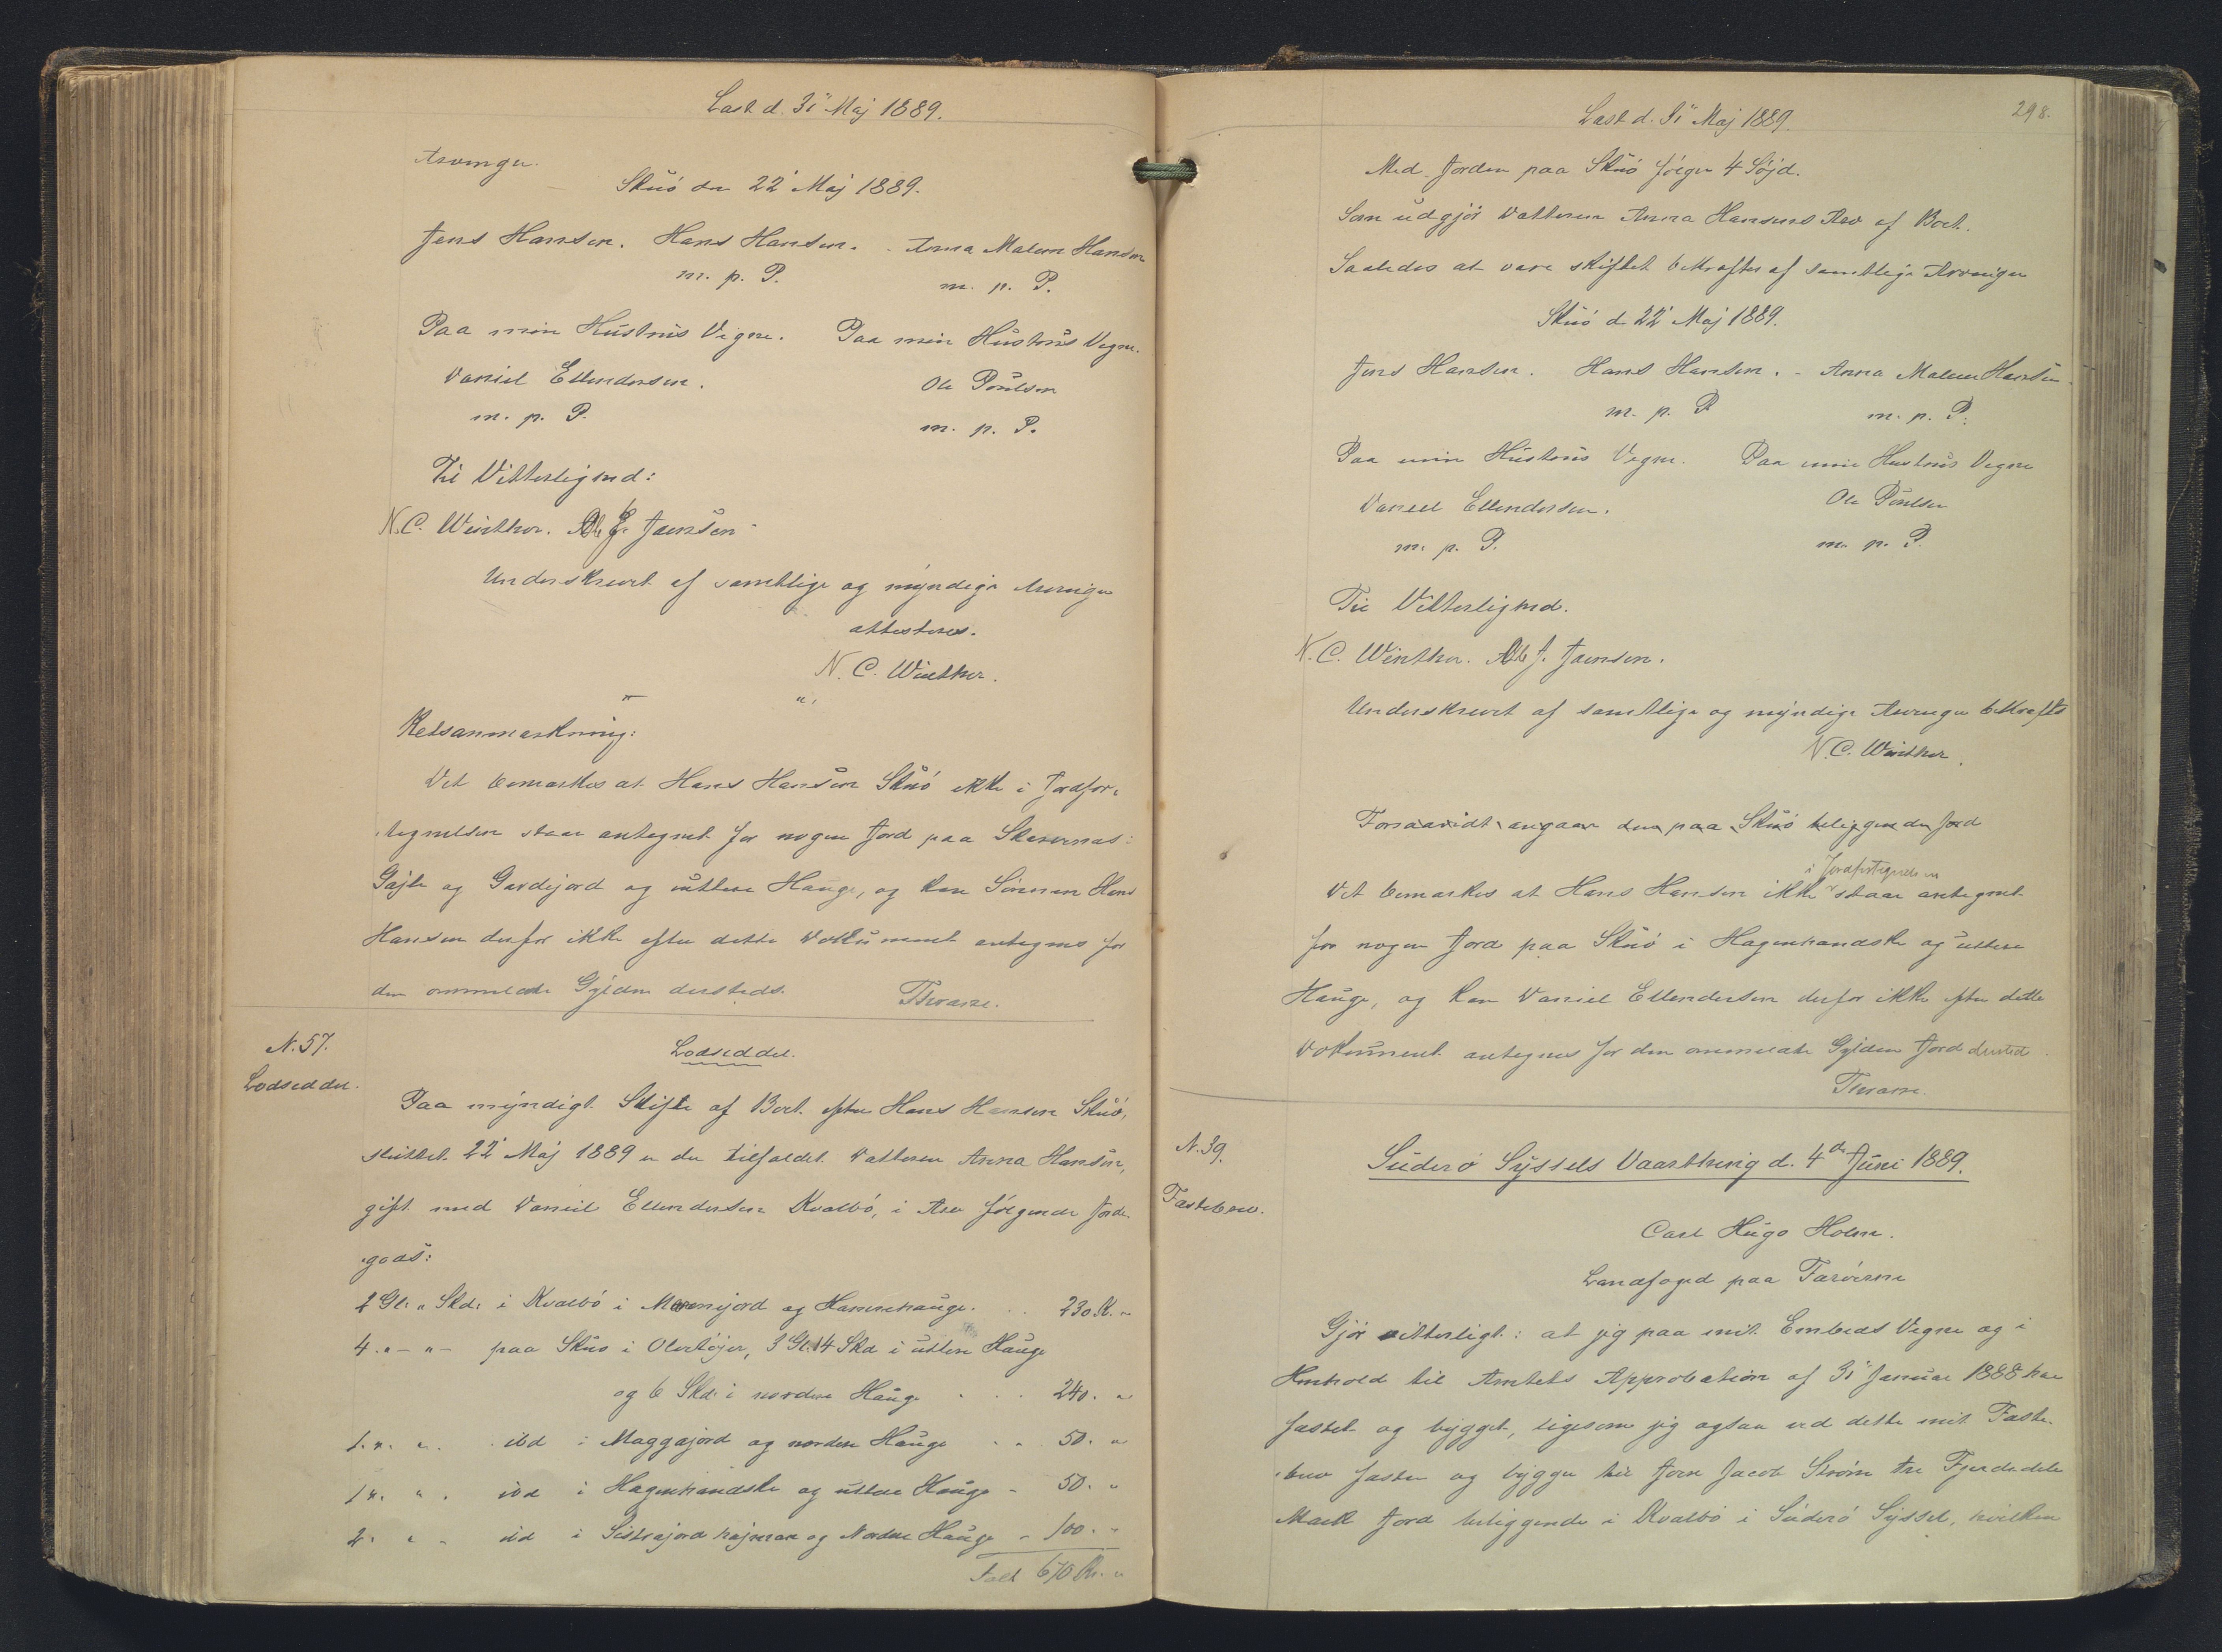 Læst d. 31' Maj 1889.
Arvinger.
Skuö den 22' Maj 1889.
Jens Hansen. Hans Hansen. Anna Malene Hansen
m. p. P. m. p. P.
Paa min Hustrus Vegne. Paa min Hustrus Vegne.
Daniel Ellendersen. Ole Poulsen
m. p. P. m. p. P.
Til Vitterlighed:
N. C. Winther. J. Joensen
Underskrevet af samtlige og myndige Arvinger
attesteres.
N. C. Winther.
Retsanmærkning:
Det bemærkes at Hans Hansen Skuö ikke i Jordfor-
tegnelsen staar antegnet for nogen Jord paa
og Gardejord og uttere Hauge, og kan Sönnen Hans
Hansen derfor ikke efter dette Dokument antegnes for
den ommeldte Gylden dersteds.
N. 57.
Lodseddel.
Lodseddel.
Paa myndigt Skifte af Boet efter Hans Hansen Skuö,
sluttet 22' Maj 1889 er der tilfaldet Datteren Anna Hansen,
gift med Daniel Ellendersen Kvalbö, i Arv fölgende Jorde-
gods:
2 Gl. " Skd. i Kvalbö i og Hammehauge. . . 230 K. "
4 " - " - paa Skuö i 3 Gl. 14 Skd i uttere Hauge
og 6 Skd. i nordere Hauge . . . 240. "
1. " " . ibd i Maggajord og nordere Hauge . . 50. "
1 " " . ibd i Hagenhandske og uttere Hauge - 50. "
2. " " ibd i og Nordere Hauge - 100. "
Talt 670 Kr. "
Læst d. 31' Maj 1889.
298.
Med Jorden paa Skuö fölger 4 Söjd.
Som udgjör Datteren Anna Hansens Arv af Boet.
Saaledes at være skiftet bekræftes af samtlige Arvinger
Skuö d. 22' Maj 1889.
Jens Hansen. Hans Hansen. - Anna Malene Hansen.
m. p. P m. p. P.
Paa min Hustrus Vegne. Paa min Hustrus Vegne
Daniel Ellendersen. Ole Poulsen
m. p. P. m. p. P.
Til Vitterlighed.
N. C. Winther. J. Joensen.
Underskrevet af samtlige og myndige Arvinger bekræftes
N. C. Winther.
Forsaavidt angaar den paa Skuö beliggende Jord
i Jordfortegnelsen
Det bemærkes at Hans Hansen ikke staar antegnet
for nogen Jord paa Skuö i Hagenhandske og uttere
Hauge, og kan Daniel Ellendersen derfor ikke efter dette
Dokument antegnes for den ommeldte Gylden Jord dersted.
N. 39.
Fæstebrev.
Süderö Syssels Vaarthing d. 4de Juni 1889.
Carl Hugo Holm.
Landfoged paa Færöerne
Gjör vitterligt: at jeg paa mit Embeds Vegne og i
Henhold til Amtets Approbation af 31' Januar 1888 har
fæstet og bygget, ligesom jeg ogsaa ved dette mit Fæste-
brev fæster og bygger til Joen Jacob Ström tre Fjerdedele
Mark Jord beliggende i Kvalbö i Süderö Syssel, hvilken